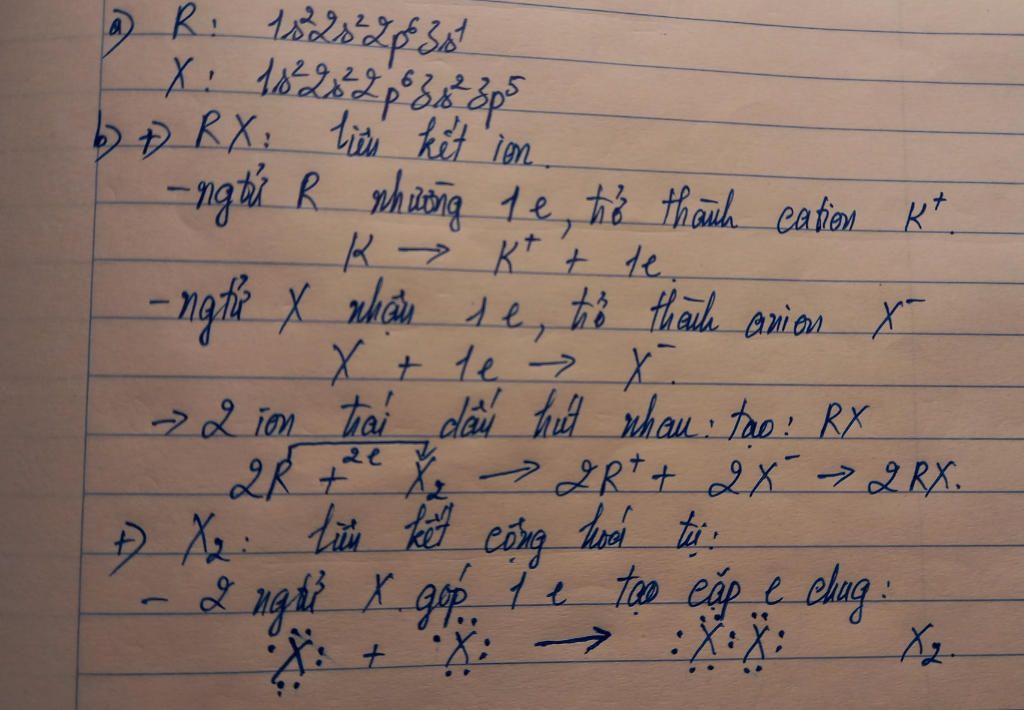 a) R: 1s²2s²2p⁶3s¹
X: 1s²2s²2p⁶3s²3p⁵
b) +) RX: liên kết ion.
- ngtử R nhường 1e, trở thành cation K⁺.
K → K⁺ + 1e.
- ngtử X nhận 1e, trở thành anion X⁻
X + 1e → X⁻.
→ 2 ion trái dấu hút nhau: tạo: RX
2e
2R + X₂ → 2R⁺ + 2X⁻ → 2RX.
+) X₂: liên kết cộng hoá trị:
- 2 ngtử X góp 1e tạo cặp e chug:
X + X → X : X X₂.